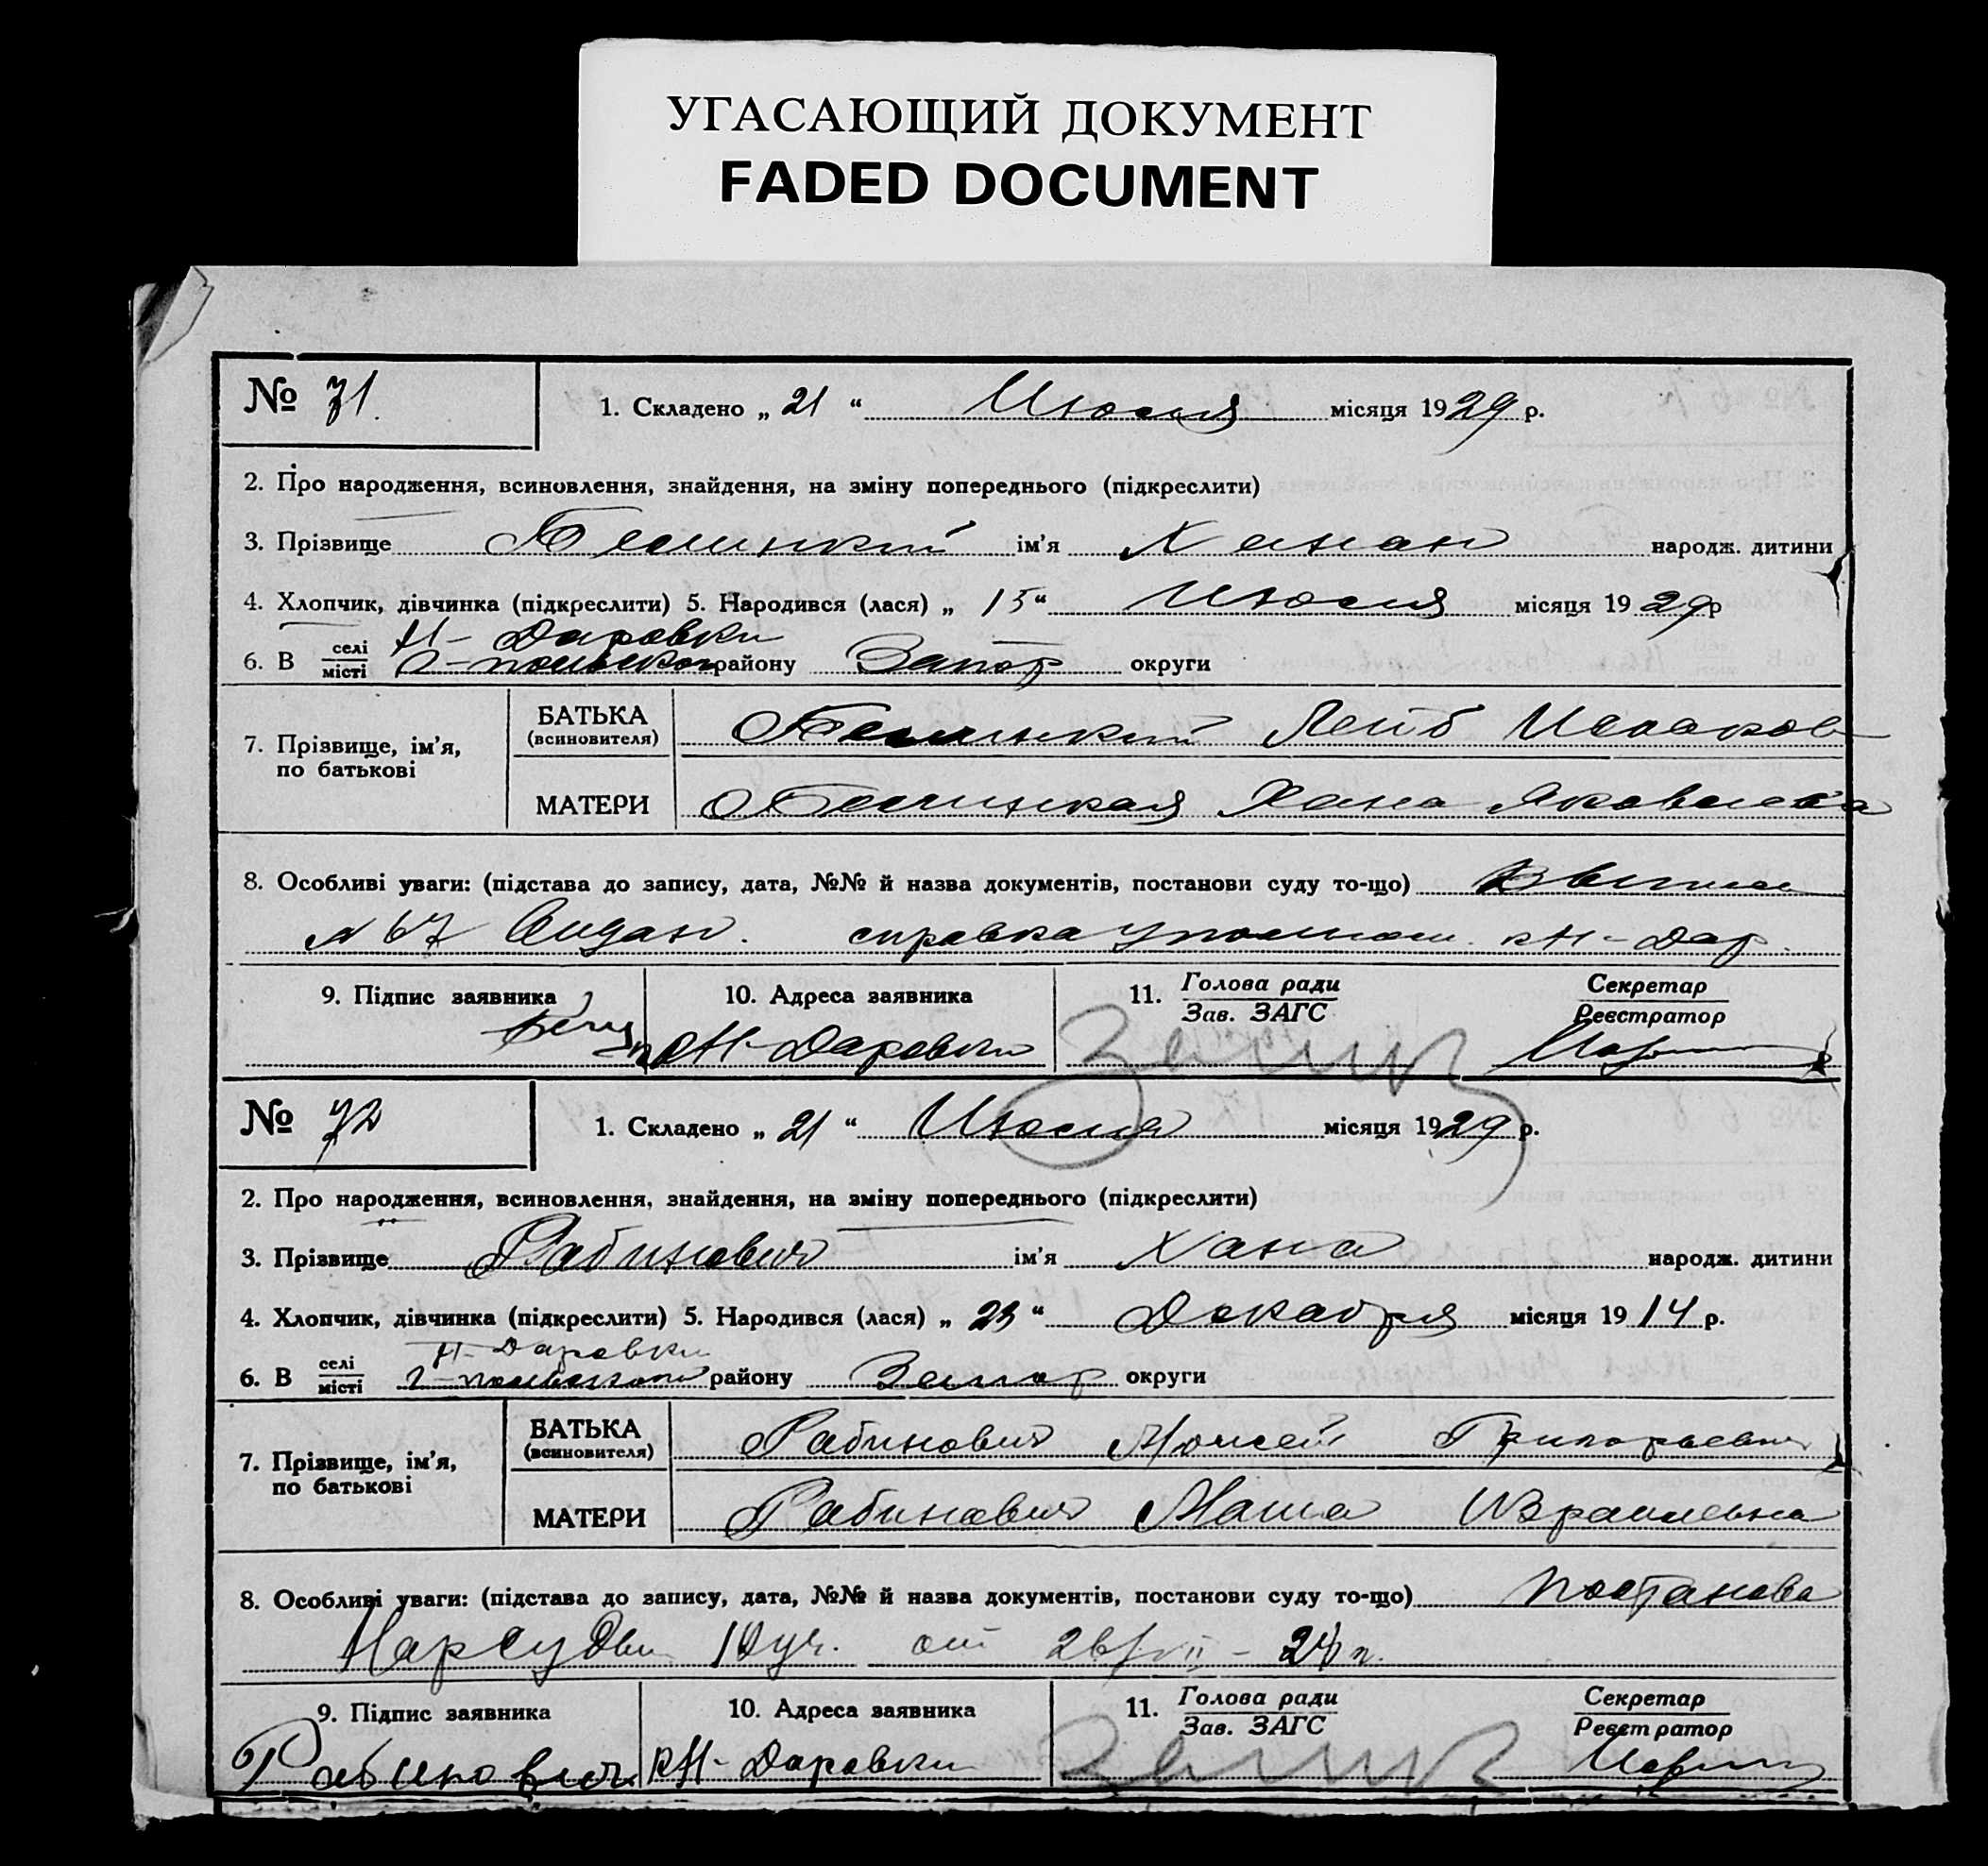 УГАСАЮЩИЙ ДОКУМЕНТ
FADED DOCUMENT
№ 71.
1. Складено „ 21 “ Июля місяця 1929 р.
2. Про народження, всиновлення, знайдення, на зміну попереднього (підкреслити)
3. Прізвище ім'я Ханан народж. дитини
4. Хлопчик, дівчинка (підкреслити) 5. Народився (лася) „ 15 “ Июля місяця 1929 р
Н-Даровки
6. В селі місті району Запор округи
7. Прізвище, ім'я, по батькові
БАТЬКА (всиновителя) Лейб
МАТЕРИ Хана Яковлевна
8. Особливі уваги: (підстава до запису, дата, №№ й назва документів, постанови суду то-що)
№ 67 справка к Н-Дар.
9. Підпис заявника
10. Адреса заявника
11. Голова ради Зав. ЗАГС
Секретар Реєстратор
к Н-Даровки
№ 72
1. Складено „ 21 “ Июля місяця 1929 р.
2. Про народження, всиновлення, знайдення, на зміну попереднього (підкреслити)
3. Прізвище Рабинович ім'я Хана народж. дитини
4. Хлопчик, дівчинка (підкреслити) 5. Народився (лася) „ 23 “ Декабря місяця 1914 р.
Н-Даровки
6. В селі місті району Запор округи
7. Прізвище, ім'я, по батькові
БАТЬКА (всиновителя) Рабинович Моисей Григорьевич
МАТЕРИ Рабинович Маша Израилевна
8. Особливі уваги: (підстава до запису, дата, №№ й назва документів, постанови суду то-що) постанова
Нарсуду 10 уч. от
9. Підпис заявника
10. Адреса заявника
11. Голова ради Зав. ЗАГС
Секретар Реєстратор
Рабинович к Н-Даровки